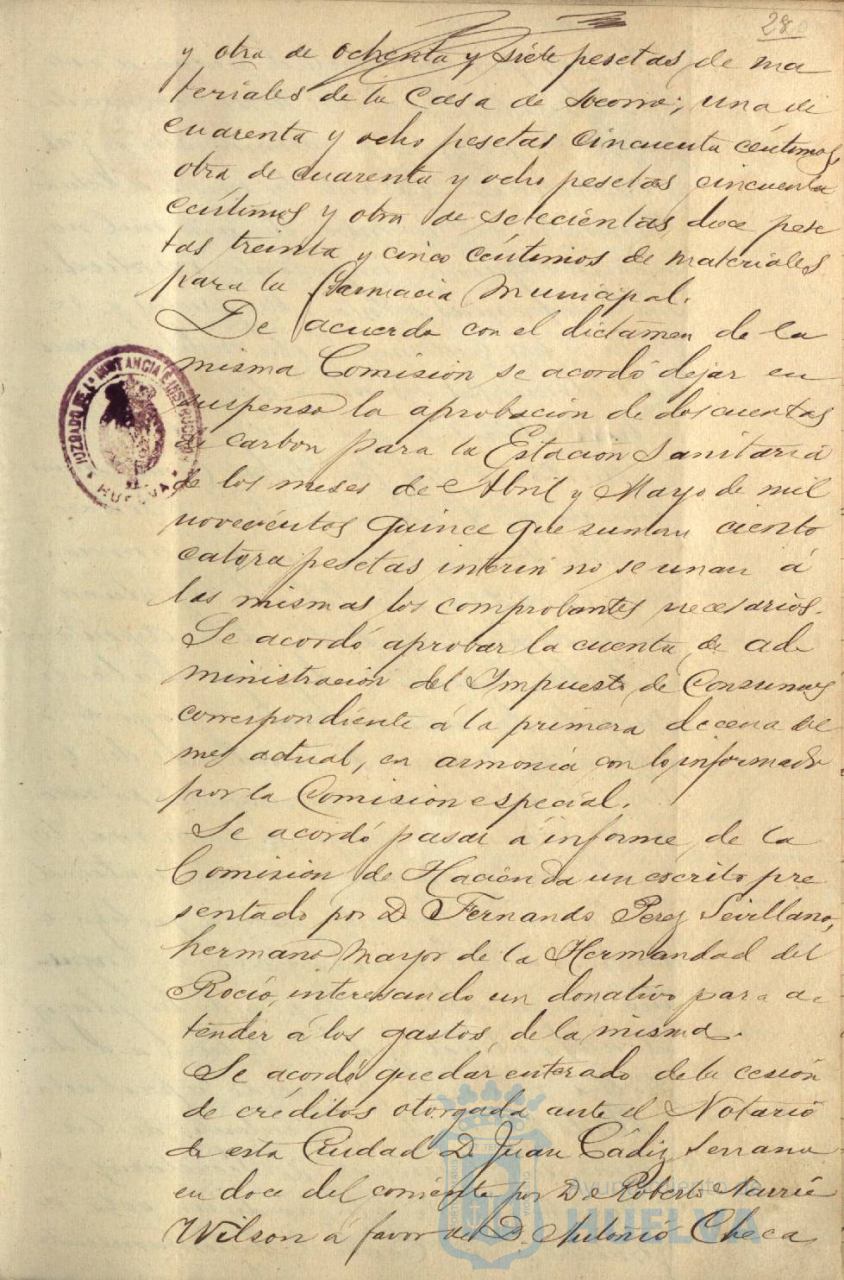 28
y otra de ochenta y siete pesetas de ma
teriales de la Casa de Socorro; una de
cuarenta y ocho pesetas cincuenta céntimos,
otra de cuarenta y ocho pesetas cincuenta
céntimos y otra de setecientas doce pese
tas treinta y cinco céntimos de materiales
para la Farmacia Municipal.
De acuerdo con el dictamen de la
misma Comisión se acordó dejar en
suspenso la aprobación de dos cuentas
de carbon para la Estación Sanitaria
de los meses de Abril y Mayo de mil
novecientos quince que suman ciento
catorce pesetas interin no se unan á
las mismas los comprobantes necesarios.
Se acordó aprobar la cuenta de ad
ministración del Impuesto de Consumos
correspondiente á la primera decena del
mes actual, en armonía con lo informado
por la Comisión especial.
Se acordó pasar á informe de la
Comisión de Hacienda un escrito pre
sentado por D. Fernando Perez Sevillano,
hermano mayor de la Hermandad del
Rocío, interesando un donativo para a
tender á los gastos de la misma.
Se acordó quedar enterado de la cesión
de créditos otorgada ante el Notario
de esta Ciudad D. Juan Cádiz Serrano
en doce del corriente por D. Roberto
Wilson á favor de D. Antonio Checa
JUZGADO DE 1ª INSTANCIA E INSTRUCCION
HUELVA
Ayuntamiento de
HUELVA